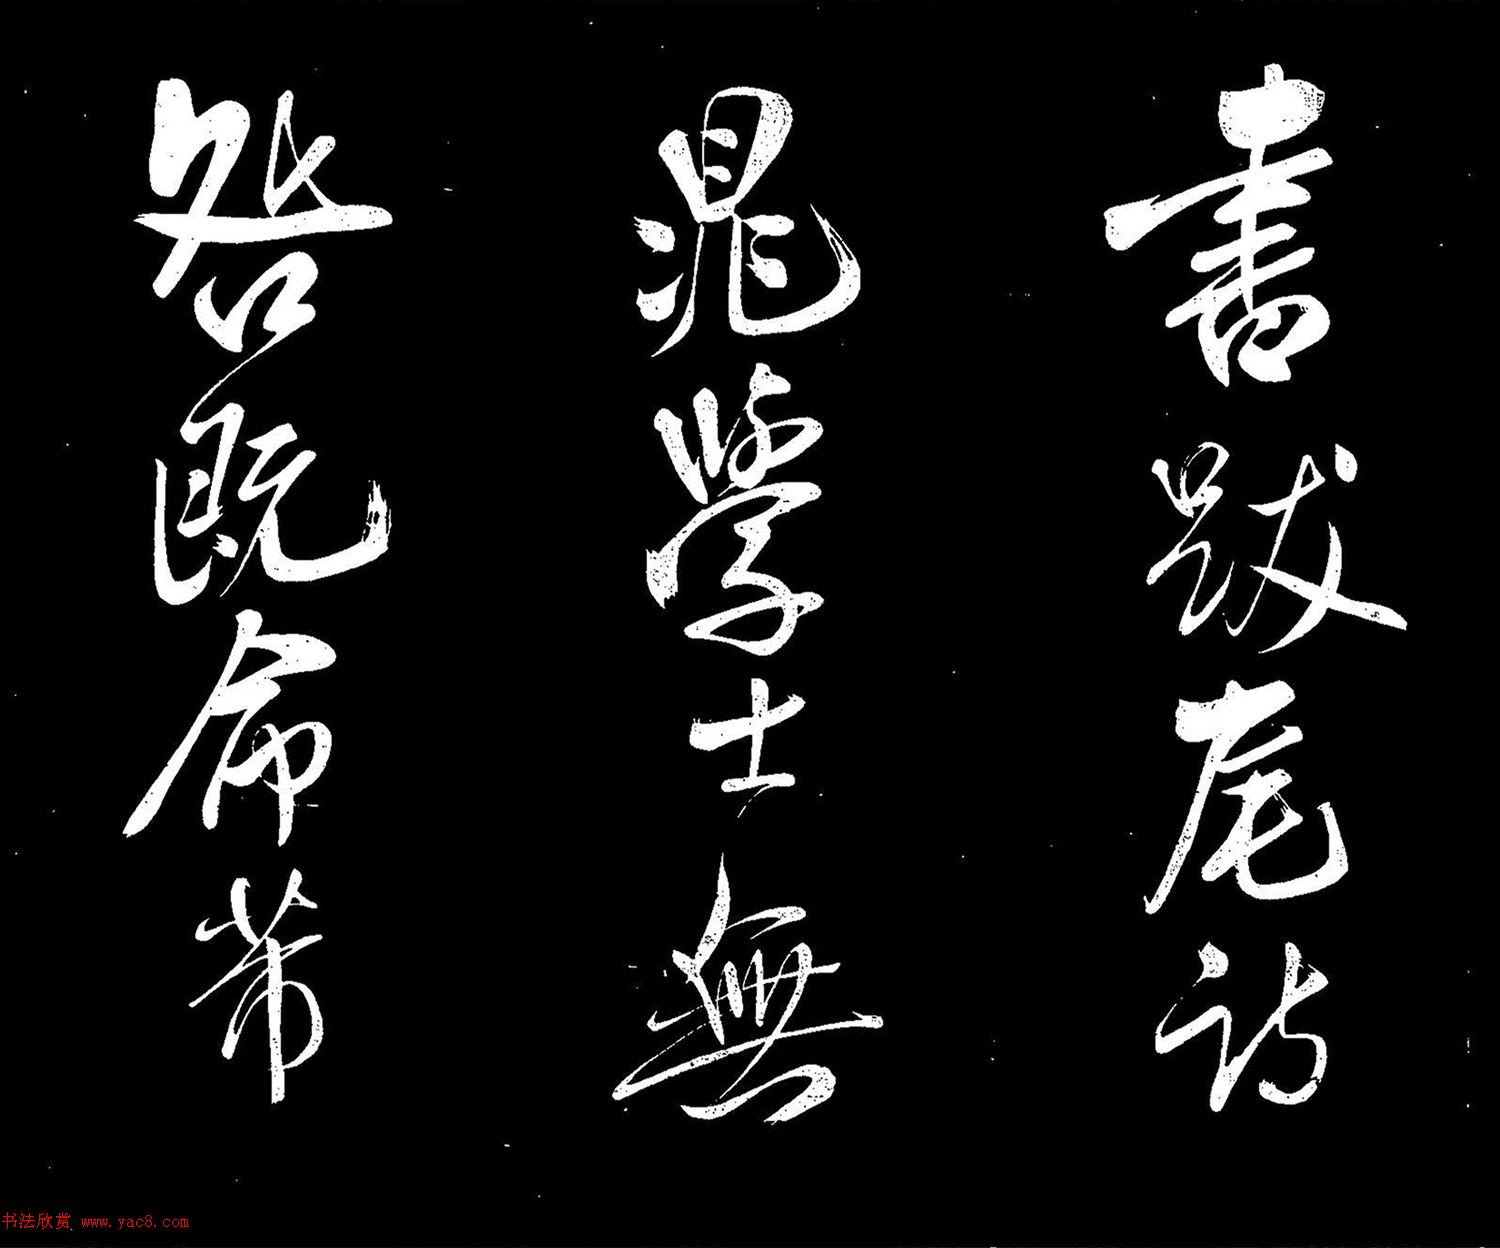 書跋尾訪
晁學士無
咎既命芾
书法欣赏 www.yac8.com